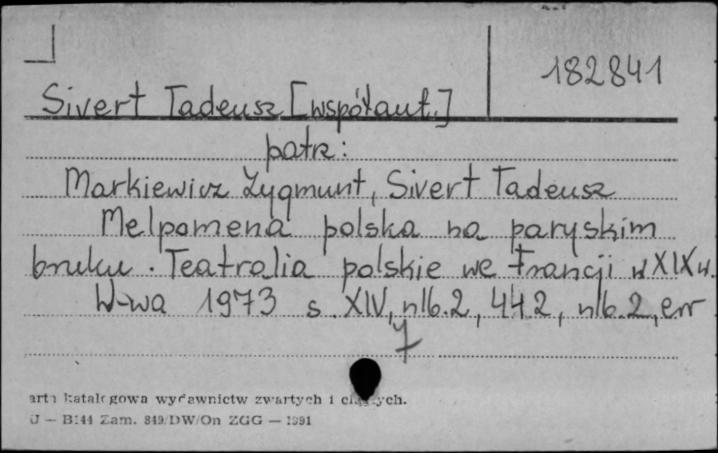 182841
Sivert Tadeusz [współaut.]
patrz:
Markiewicz Zygmunt, Sivert Tadeusz
Melpomena polska na paryskim
bruku. Teatralia polskie we Francji w XIX w.
W-wa 1973 s. XIV, nlb. 2, 442, nlb. 2, err
arta katalogowa wydawnictw zwartych i ciągłych.
U — B144 Zam. 849/DW/On ZGG — 1991